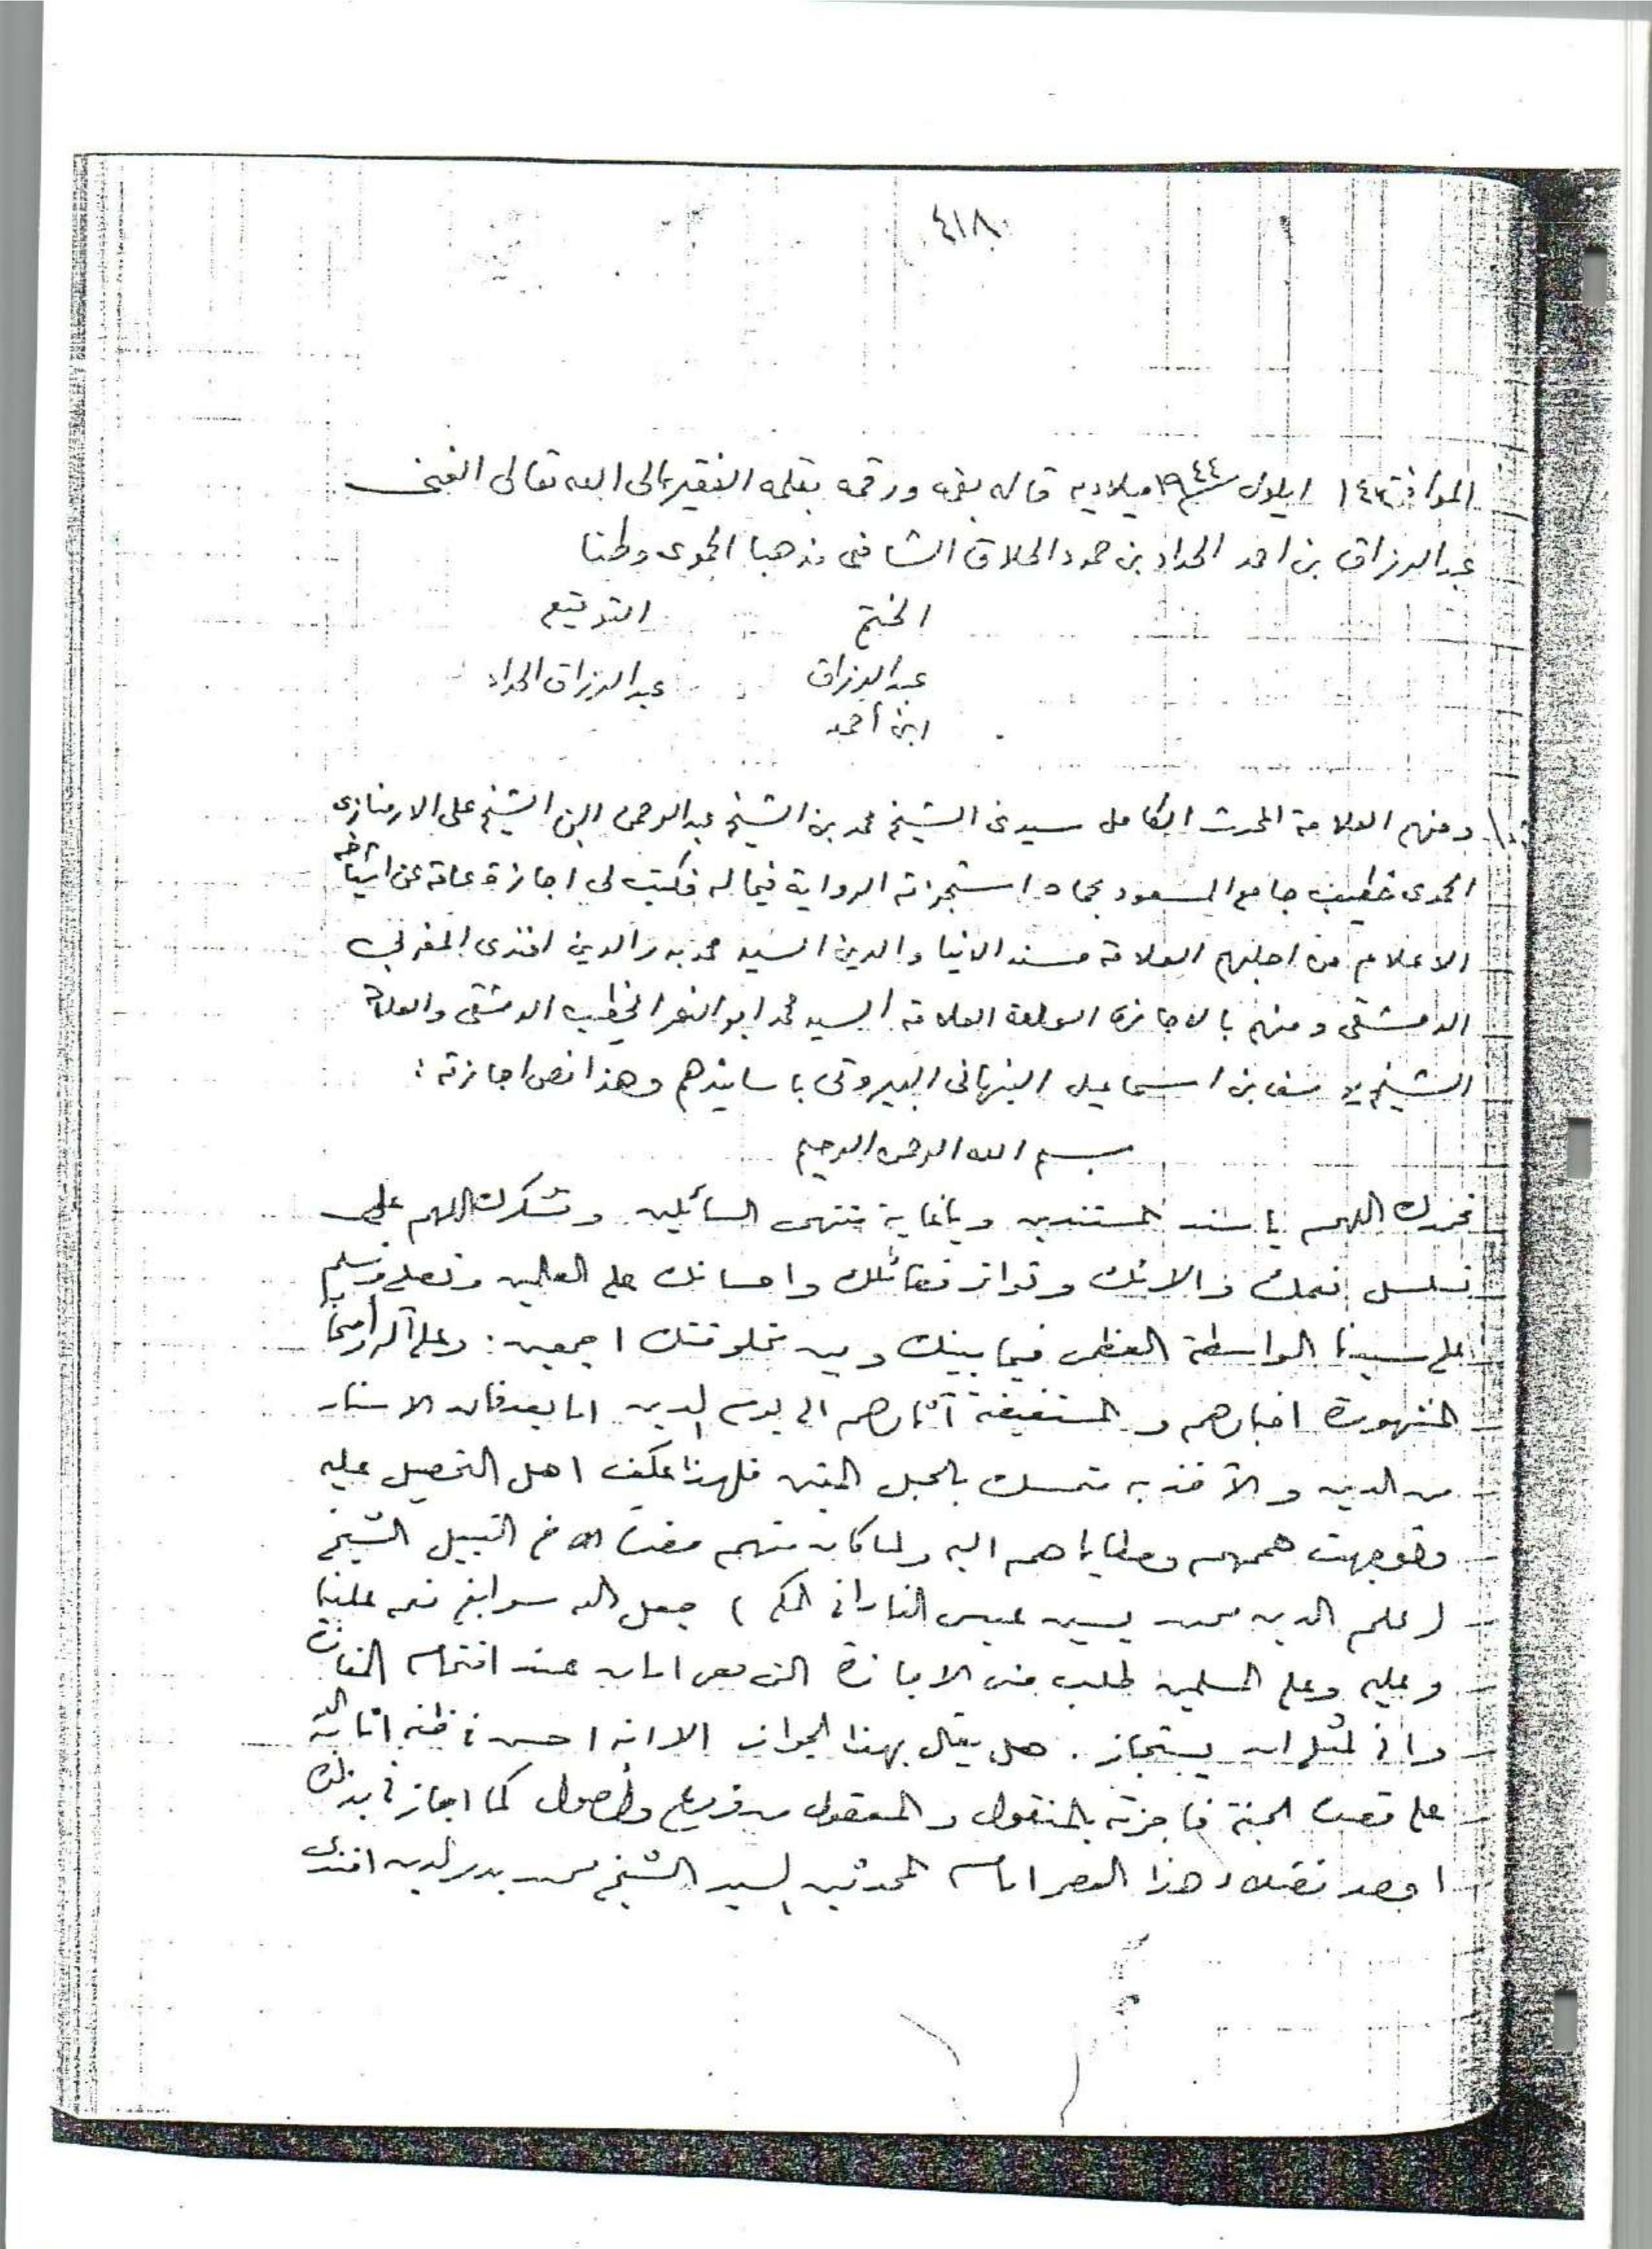 ٤١٨
الموافق ١٤ ايلول ١٩٤٤ ميلاديه قاله بفمه ورقمه بقلمه الفقير الى الله تعالى الغني
عبد الرزاق بن احمد الحداد بن حمود الحلاق الشافعى مذهبا الحموى وطنا
الختم التوقيع
عبد الرزاق عبد الرزاق الحداد
ابن أحمد
ومنهم العلامة المحدث الكامل سيدى الشيخ محمد بن الشيخ عبد الرحمن ابن الشيخ على الارمنازى
الحموى خطيب جامع المسعود بحماه استجزته الرواية فيما له فكتب لى اجازة عامة عن اشياخه
الاعلام من اجلهم العلامة مسند الدنيا والدين السيد محمد بدر الدين افندى المغربي
الدمشقى ومنهم بالاجازة العلامة السيد محمد ابو النصر الخطيب الدمشقى والعلامة
الشيخ يوسف بن اسماعيل النبهانى البيروتى باسانيدهم وهذا نص اجازته :
بسم الله الرحمن الرحيم
نحمدك اللهم يا سند المستندين ويا غاية منتهى السائلين ونشكرك اللهم على
تسلسل نعمك والائك وتواتر فضائلك واحسانك على العالمين ونصلى ونسلم
على سيدنا الواسطة العظمى فيما بينك وبين مخلوقتك اجمعين : وعلى آله وأصحابه
المشهورة اخبارهم والمستفيضة آثارهم الى يوم الدين اما بعد فان الاسناد
من الدين والآخذ به متمسك بالحبل المتين فلهذا عكف اهل التحصيل عليه
وتوجهت هممهم ومطاياهم اليه ولما كان منهم حضرت الاخ النبيل الشيخ
( علم الدين محمد يسين عيسى الفادانى المكى ) جعل الله سوابغ نعمه علينا
وعليه وعلى المسلمين طلب منى الاجازة التى هى امان عند اقتحام المفازة
وانى لمثلى ان يستجاز . هل يقال بهذا الجواز الا انه احسن فى ظنه اثابه الله
على قصده الجنة فاجزته بالمنقول والمعقول من فروع وأصول كما اجازنى بذلك
اوحد فضلاء هذا العصر امام المحدثين السيد الشيخ محمد بدر الدين افندى